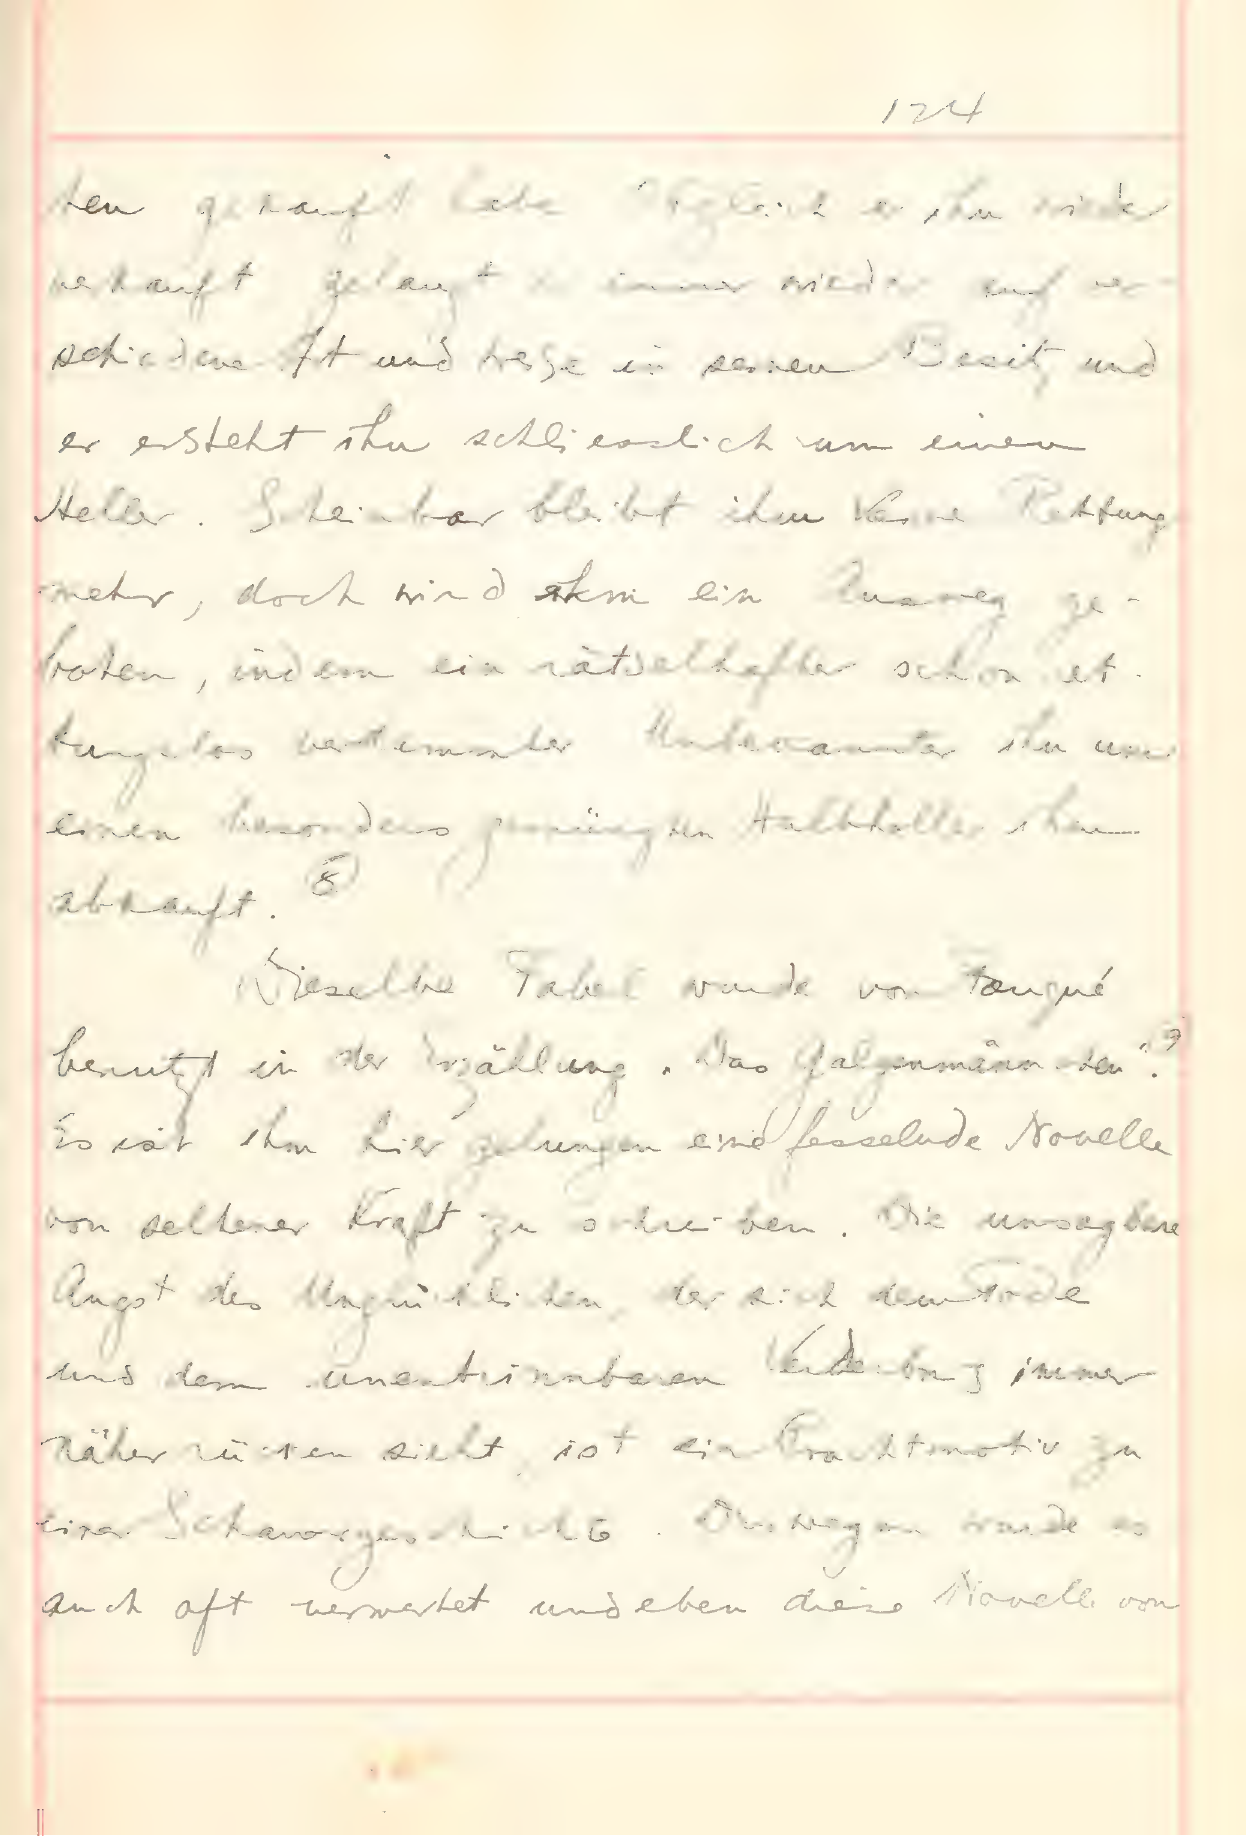 124
ten gekauft habe Obgleich er ihn wieder
verkauft gelangt er immer wieder auf ver-
schiedene Art und Weise in seinen Besitz und
er ersteht ihn schliesslich um einen
Heller. Scheinbar bleibt ihm keine Rettung
mehr, doch wird ihm ein Ausweg ge-
boten, indem ein rätselhafter schon ret-
tungslos verdammter Unbekannter ihn um
einen besonders geprägten Halbheller ihm
abkauft. (8)
Dieselbe Fabel wurde von Fouqué
benutzt in der Erzählung „Das Galgenmännchen“. 9
Es ist ihm hier gelungen eine fesselnde Novelle
von seltener Kraft zu schreiben. Die unsagbare
Angst des Unglücklichen, der sich dem Tode
und dem unentrinnbaren Verderben immer
näher rücken sieht, ist ein Prachtmotiv zu
einer Schauergeschichte. Deswegen wurde es
auch oft verwertet und eben diese Novelle von